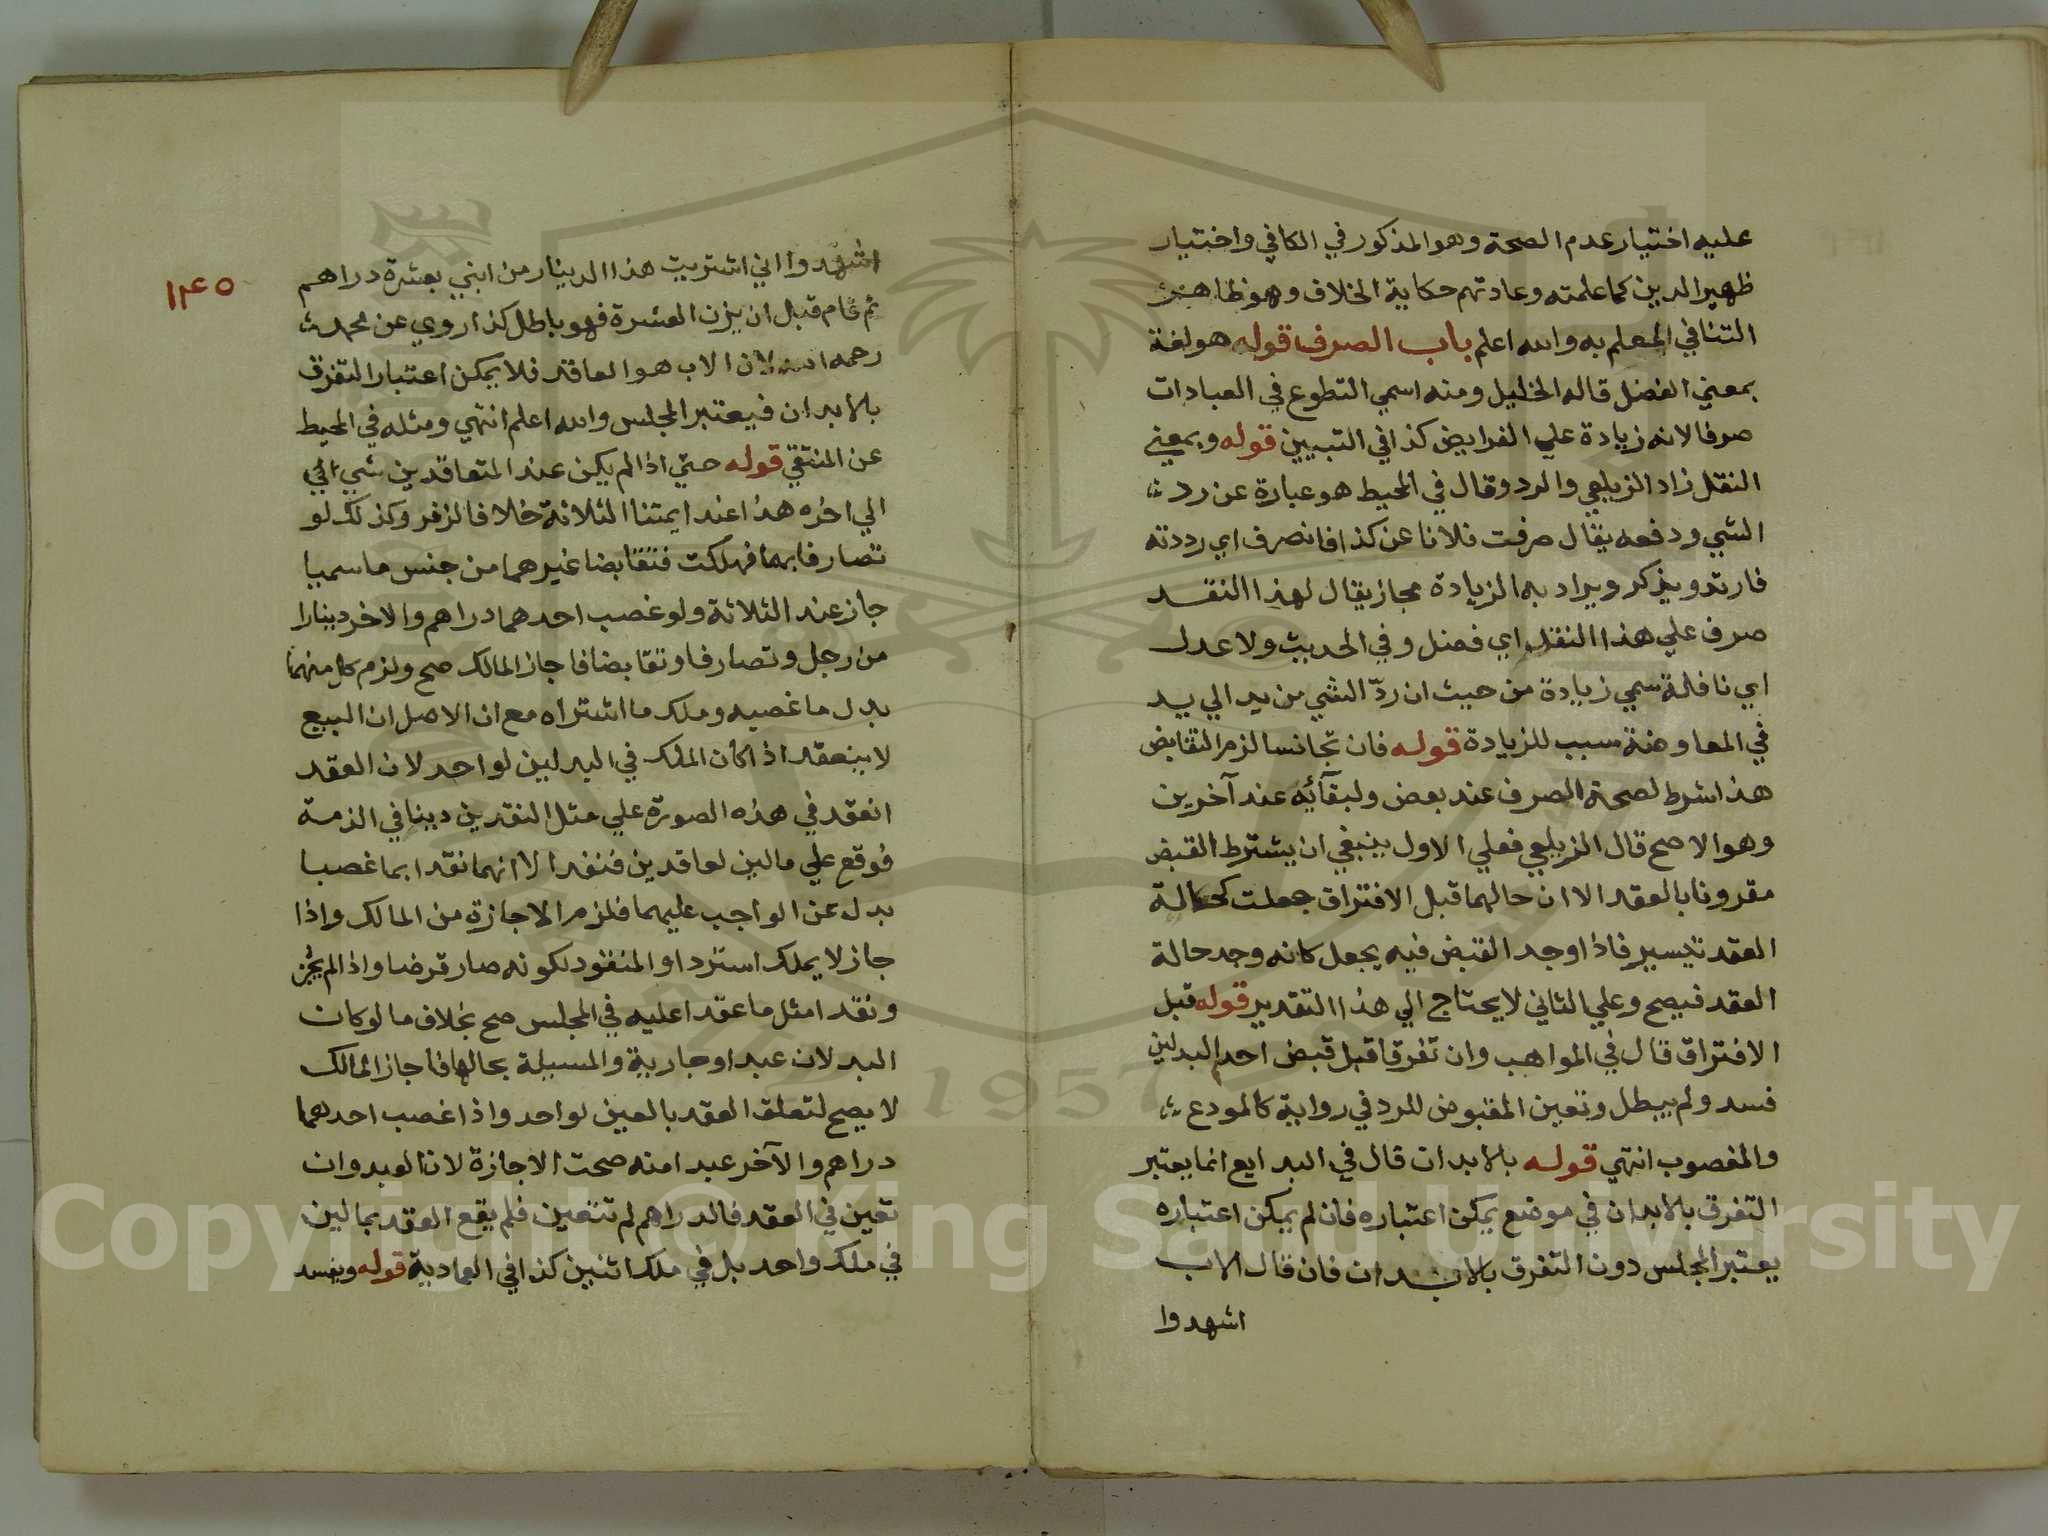 عليه اختيار عدم الصحة وهو المذكور في الكافي واختيار
ظهير الدين كما علمته وعادتهم حكاية الخلاف وهو ظاهر
التنافي المعلم به والله اعلم باب الصرف قوله هو لغة
بمعني الفضل قاله الخليل ومنه اسمي التطوع في العبادات
صرفا لانه زيادة علي الفرايض كذا في التبيين قوله وبمعني
النقل زاد الزيلعي والرد وقال في المحيط هو عبارة عن رد
الشي ودفعه يقال صرفت فلانا عن كذا فانصرف اي رددته
فارتد ويذكر ويراد به الزيادة مجاز يقال لهذا النقد
صرف علي هذا النقد اي فضل وفي الحديث ولا عدل
اي نافلة سمي زيادة من حيث ان ردّ الشي من يد الي يد
في المعاوضة سبب للزيادة قوله فان تجانسا لزم التقابض
هذا شرط لصحة الصرف عند بعض ولبقآئه عند آخرين
وهو الاصح قال الزيلعي فعلي الاول ينبغي ان يشترط القبض
مقرونا بالعقد الا ان حالهما قبل الافتراق جعلت كحالة
العقد تيسير فاذا وجد القبض فيه يجعل كانه وجد حالة
العقد فيصح وعلي الثاني لا يحتاج الي هذا التقدير قوله قبل
الافتراق قال في المواهب وان تفرقا قبل قبض احد البدلين
فسد ولم يبطل وتعين المقبوض للرد في رواية كالمودع
والمغصوب انتهي قوله بالابدان قال في البدايع انما يعتبر
التفرق بالابدان في موضع يمكن اعتباره فان لم يمكن اعتباره
يعتبر المجلس دون التفرق بالابدان فان قال الاب
اشهدوا
١٤٥
اشهدوا اني اشتريت هذا الدينار من ابني بعشرة دراهم
ثم قام قبل ان يزن العشرة فهو باطل كذا روي عن محمد
رحمه الله لان الاب هو العاقد فلا يمكن اعتبار التفرق
بالابدان فيعتبر المجلس والله اعلم انتهي ومثله في المحيط
عن المنتقي قوله حتي اذا لم يكن عند المتعاقدين شي الي
الي اخره هذا عند ايمتنا الثلاثة خلافا لزفر وكذلك لو
تصارفا بهما فهلكت فتقابضا غيرهما من جنس ما سميا
جاز عند الثلاثة ولو غصب احدهما دراهم والاخر دينارا
من رجل وتصارفا وتقابضا فاجاز المالك صح ولزم كل منهما
بدل ما غصبه وملك ما اشتراه مع ان الاصل ان البيع
لا ينعقد اذا كان الملك في البدلين لواحد لان العقد
انعقد في هذه الصورة علي مثل النقدين دينا في الذمة
فوقع علي مالين لعاقدين فنفذ الا انهما نقدا بما غصبا
بدل عن الواجب عليهما فلزم الاجازة من المالك واذا
جاز لا يملك استرداد المنقود لكونه صار قرضا واذا لم يجز
ونقدا مثل ما عقدا عليه في المجلس صح بخلاف ما لو كان
البدلان عبدا وجارية والمسئلة بحالها فاجاز المالك
لا يصح لتعلق العقد بالعين لواحد واذا غصب احدهما
دراهم والآخر عبدا منه صحت الاجازة لان العبد وان
تعين في العقد فالدراهم لم تتعين فلم يقع العقد بمالين
في ملك واحد بل في ملك اثنين كذا في العمادية قوله ويفسد
1957
Copyright © King Saud University